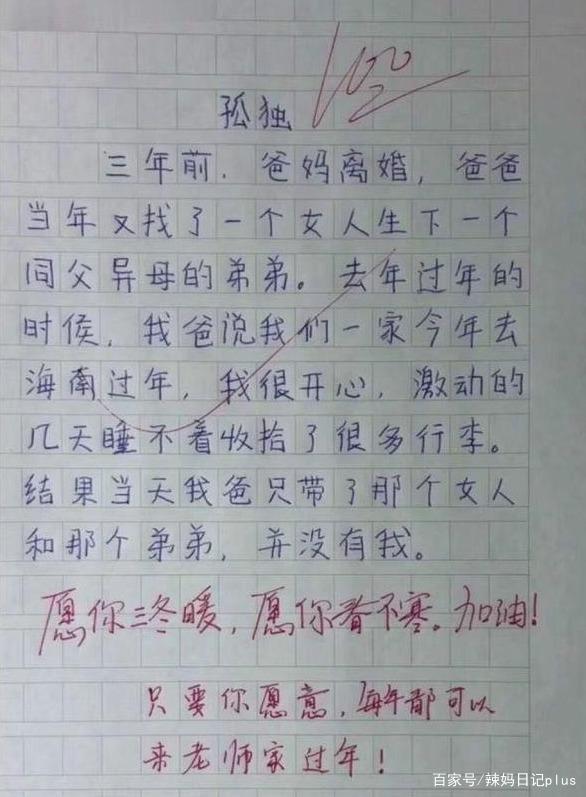 100
孤独
三年前，爸妈离婚，爸爸
当年又找了一个女人生下一个
同父异母的弟弟。去年过年的
时候，我爸说我们一家今年去
海南过年，我很开心，激动的
几天睡不着收拾了很多行李。
结果当天我爸只带了那个女人
和那个弟弟，并没有我。
愿你三冬暖，愿你春不寒。加油！
只要你愿意，每年都可以
来老师家过年！
百家号/辣妈日记plus